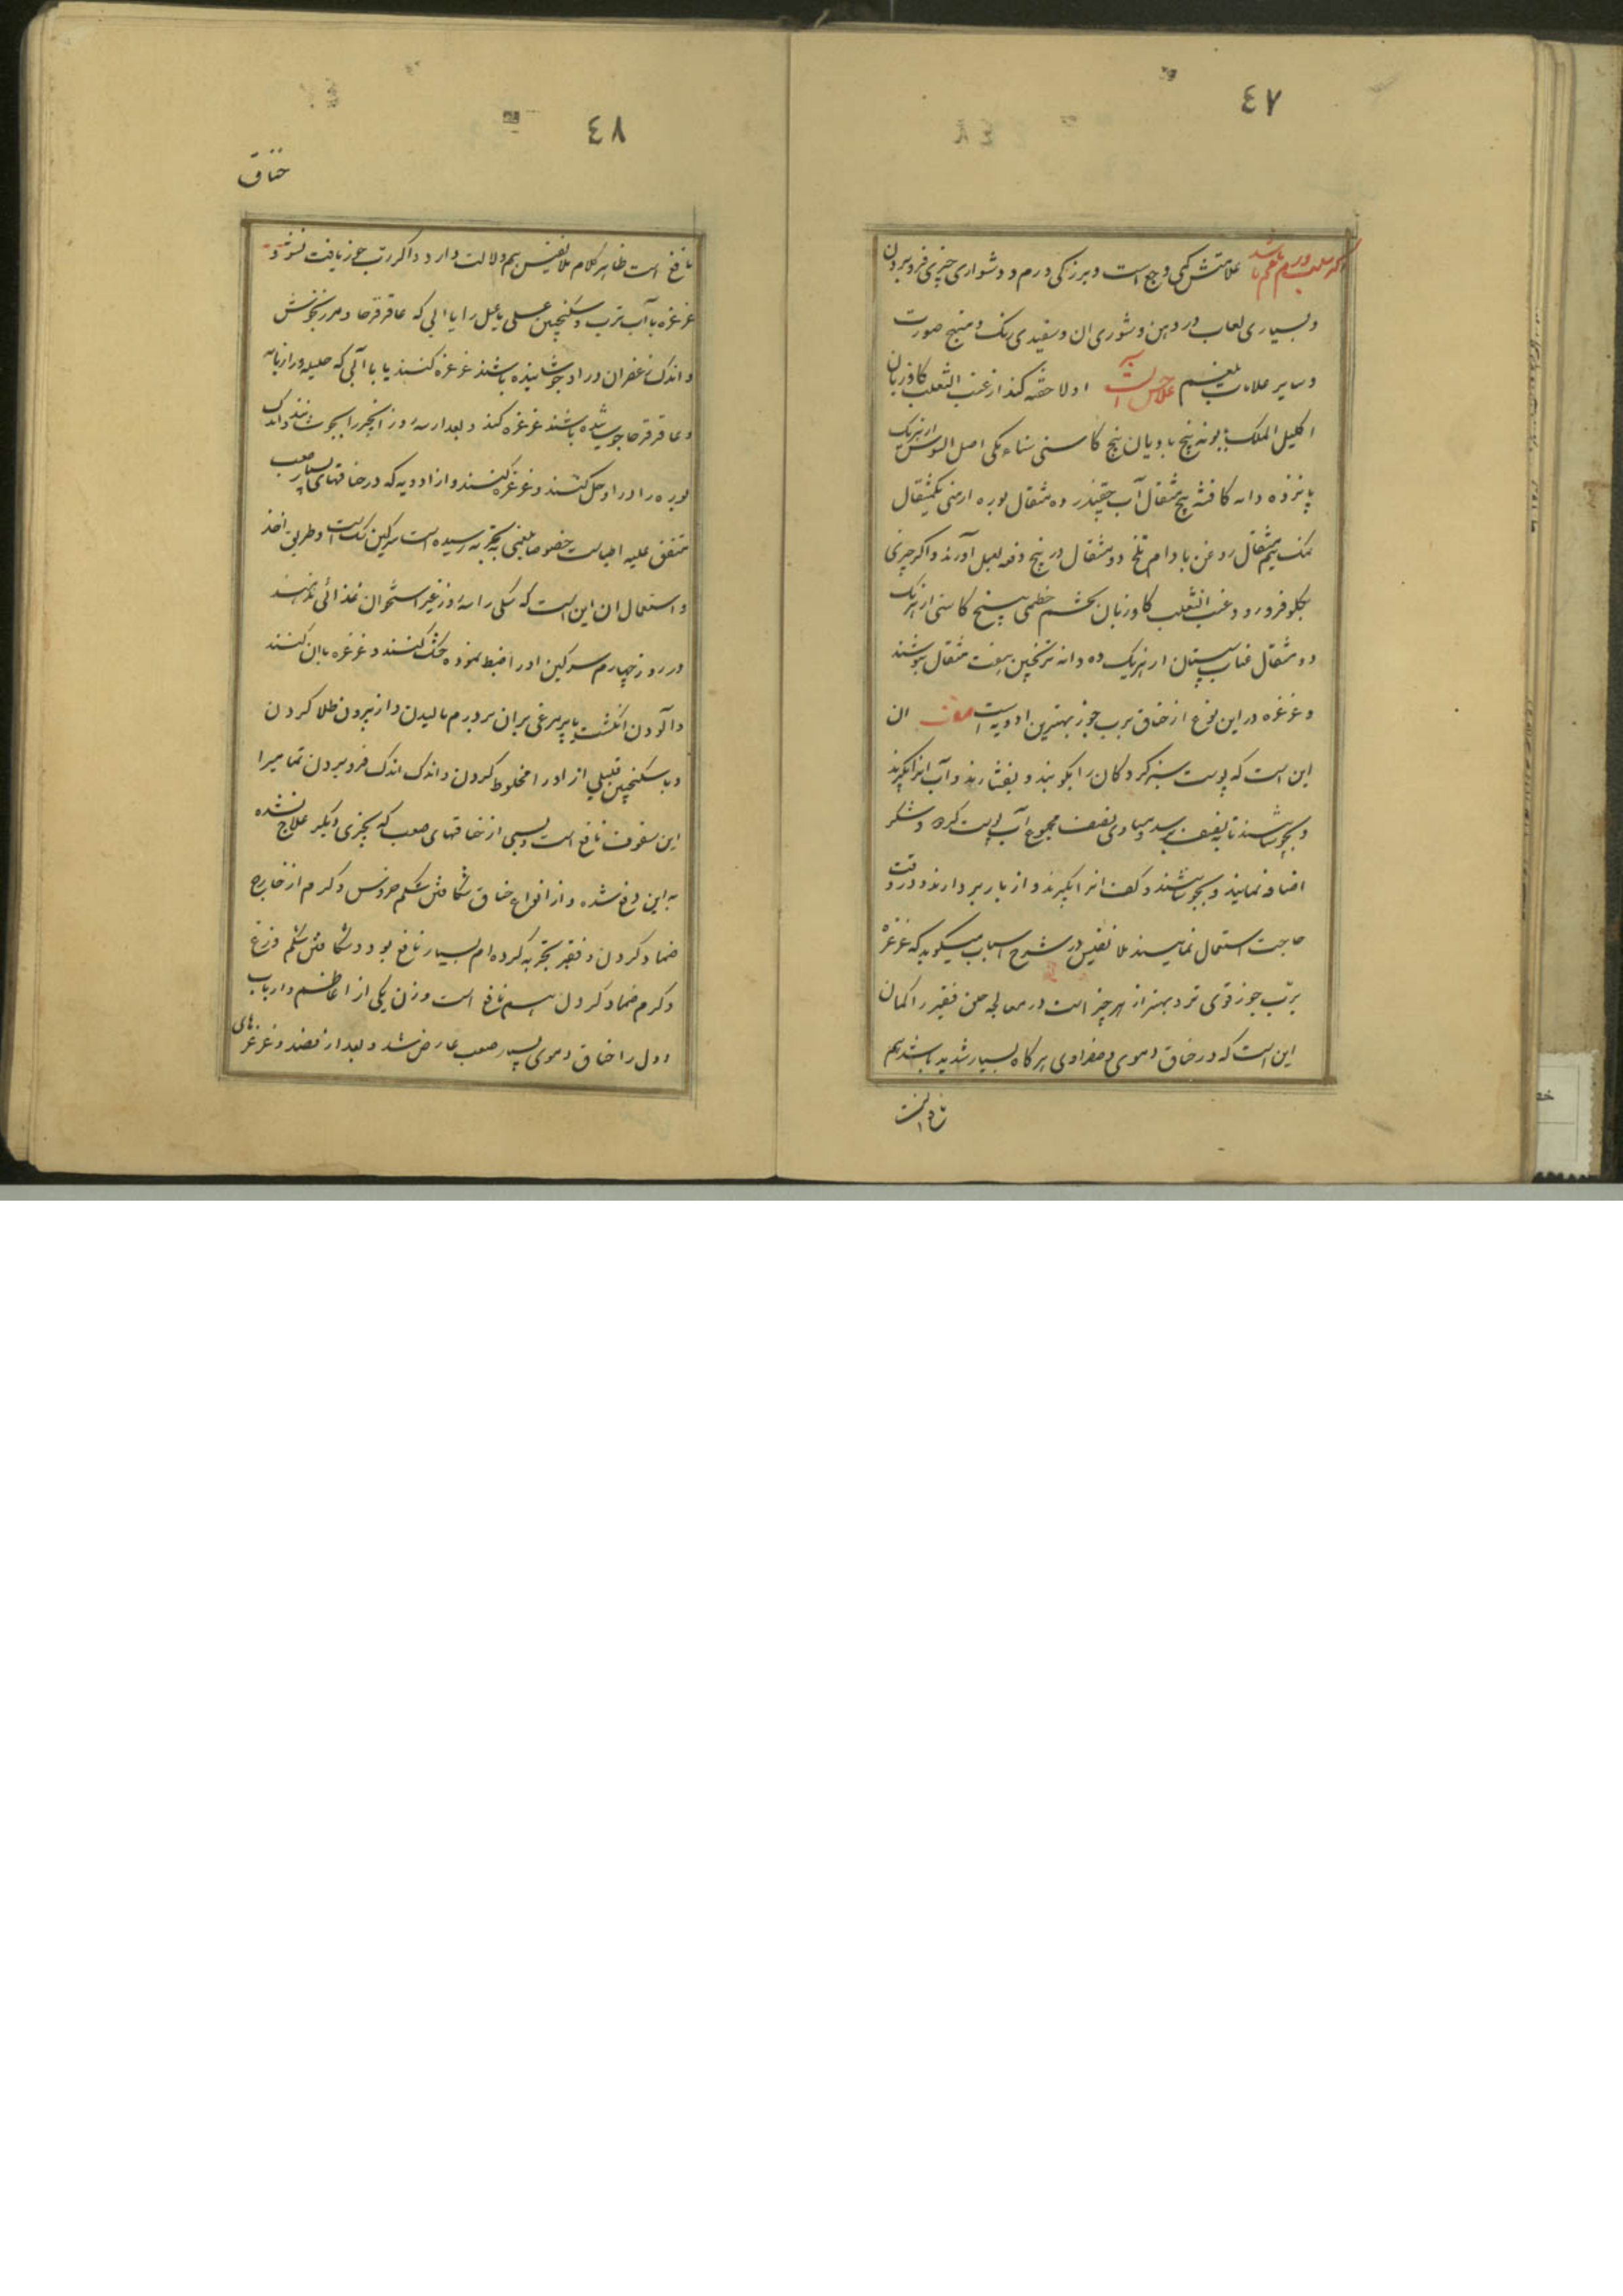 ٤٧
علامتش کمی وجع است و بزرگی ورم و دشواری چیزی فرو بردن
و بسیاری لعاب در دهن و شوری ان و سفیدی رنک و تهبج صورت
و سایر علامات بلغم علاجش اولا حقنه کنند از عنب الثعلب کاوزبان
اکلیل الملک بابونه بیخ بادیان بیخ کاسنی سناء مکی اصل السوس از هریک
پانزده دانه کافشه پنج مثقال آب چقندر ده مثقال بوره ارمنی یکمثقال
نمک نیم مثقال روغن بادام تلخ دو مثقال در پنج دفعه بعمل آورند و اکر چیزی
بکلو فرو رود عنب الثعلب کاوزبان تخم خطمی بیخ کاسنی از هریک
دو مثقال عناب سپستان از هریک ده دانه ترنجبین هفت مثقال بنوشند
و غرغره در این نوع از خناق برب جوز بهترین ادویه است ان
این است که پوست سبز کردکان را بکوبند و بفشارند و آب انرا بکیرند
و بجوشانند تا بنصف رسد و مساوی نصف مجموع آب پوست کردو شکر
اضافه نمایند و بجوشانند و کف انرا بکیرند و از بار بردارند و در وقت
حاجت استعمال نمایند ملا نفیس در شرح اسباب میکوید که غرغره
بربّ جوز قوی تر و بهتر از هر چیز است در معالجه حلق فقیر را کمان
این است که در خناق دموی و صفراوی هرکاه بسیار شدید باشد هم
نافع است
٤٨
خناق
نافع است ظاهر کلام ملا نفیس هم دلالت دارد و اکر رب جوز یافت نشود
غرغره باآب ترب و سکنجبین عسلی یا عسل را با ابی که عاقرقرحا و مرزنجوش
و اندک زعفران در او جوشانیده باشند غرغره کنند یا با آبی که حلبه و رازیانه
و عاقرقرحا جوشانیده باشند غرغره کند و بعد از سه روز انجیر را بجوشانند و اندک
بوره را در او حل کنند و غرغره کنند و از ادویه که در خناقهای بسیار صعب
متفق علیه اطباست خصوصا بلغمی بتجربه رسیده است سرکین سک است و طریق اخذ
و استعمال ان این است که سکی را سه روز غیر استخوان غذائی ندهند
در روز چهارم سرکین او را ضبط نموده خشک کنند و غرغره باان کنند
و آلودن انکشت یا پر مرغی بران بر ورم مالیدن و از بیرون طلا کردن
و با سکنجبین قلیلی از او را مخلوط کردن و اندک اندک فرو بردن تمامیرا
این سفوف نافع است و بسی از خناقهای صعب که بچیزی دیکر علاج نشده
به این دفع شده و از انواع خناق شکافتن شکم خروس و کرم از خارج
ضماد کردن و فقیر تجربه کرده ام بسیار نافع بود و شکافتن شکم وزغ
و کرم ضماد کردن هم نافع است و زن یکی از اعاظم و ارباب
دول را خناق دموی بسیار صعب عارض شد و بعد از فصد و غرغرهای